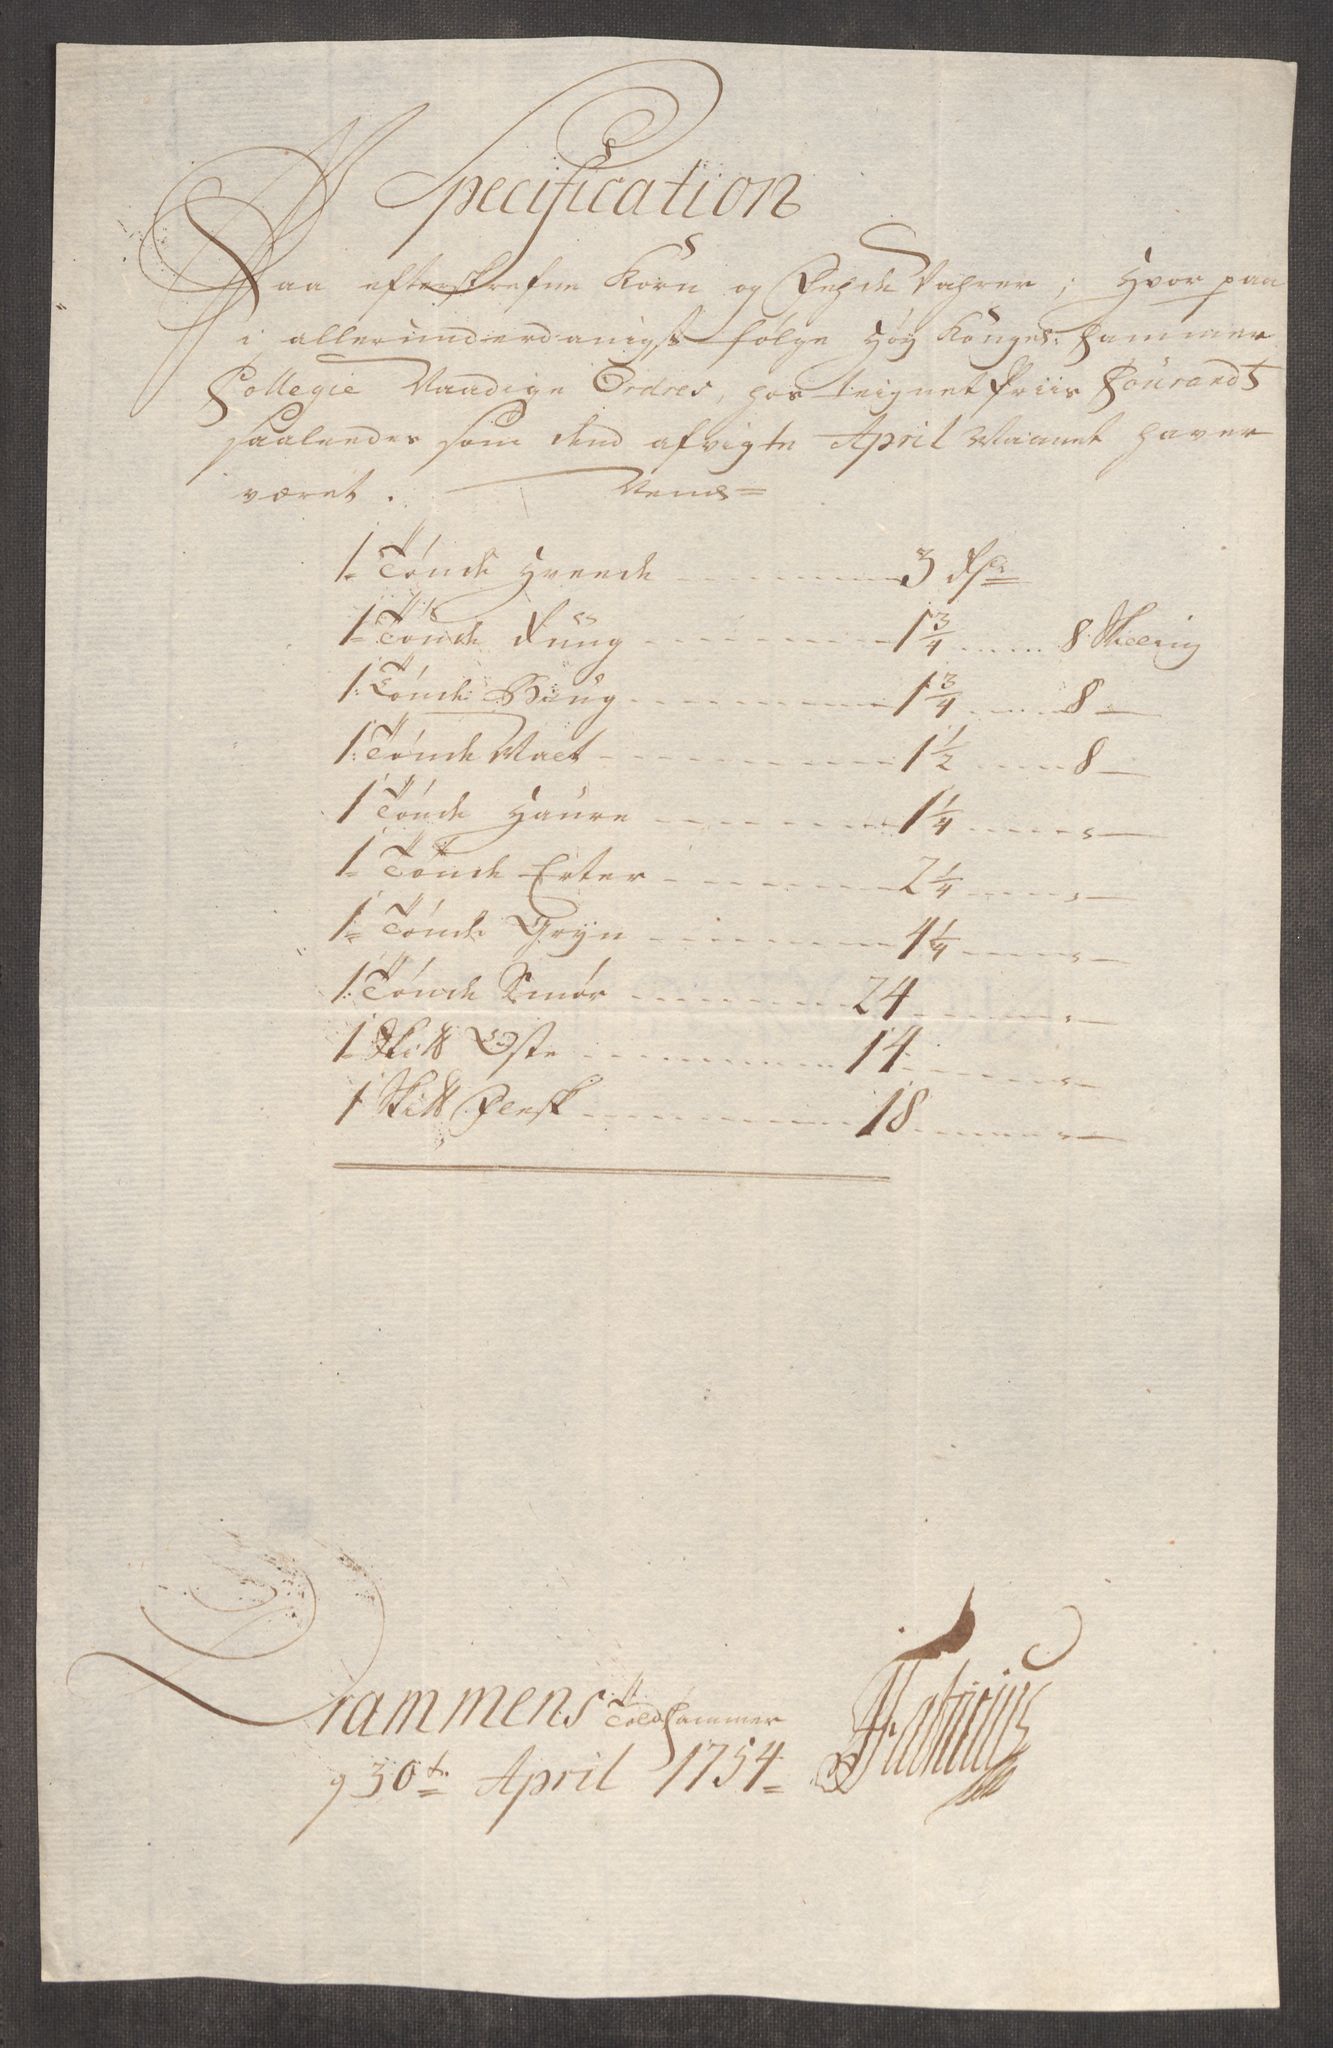 Specification
Paa efterskrefne Korn og Fehde Vahrer; Hvor paa
i allerunderdanigst følge Høy Konges: Cammer
Collegie Naadige Ordres, hos teignet Priis Courandt
saaledes som dend afvigte April Maanet haver
været. Nemb=
1 Tønde Hveede 3 Rdr
1 Tønde Rüug 1 3/4 8 Skilling
1 Tønde Büug 1 3/4 8 —
1 Tønde Malt 1 1/2 8 —
1 Tønde Haure 1 1/4 " —
1 Tønde Erter 2 1/4 " —
1 Tønde Gryn 4 1/4 " —
1 Tønde Smør 24 " —
1 Sk℔ Oste 14 " —
1 Sk℔ Flesk 18 " —
Drammens Told Cammer
d 30te April 1754 Fabricius